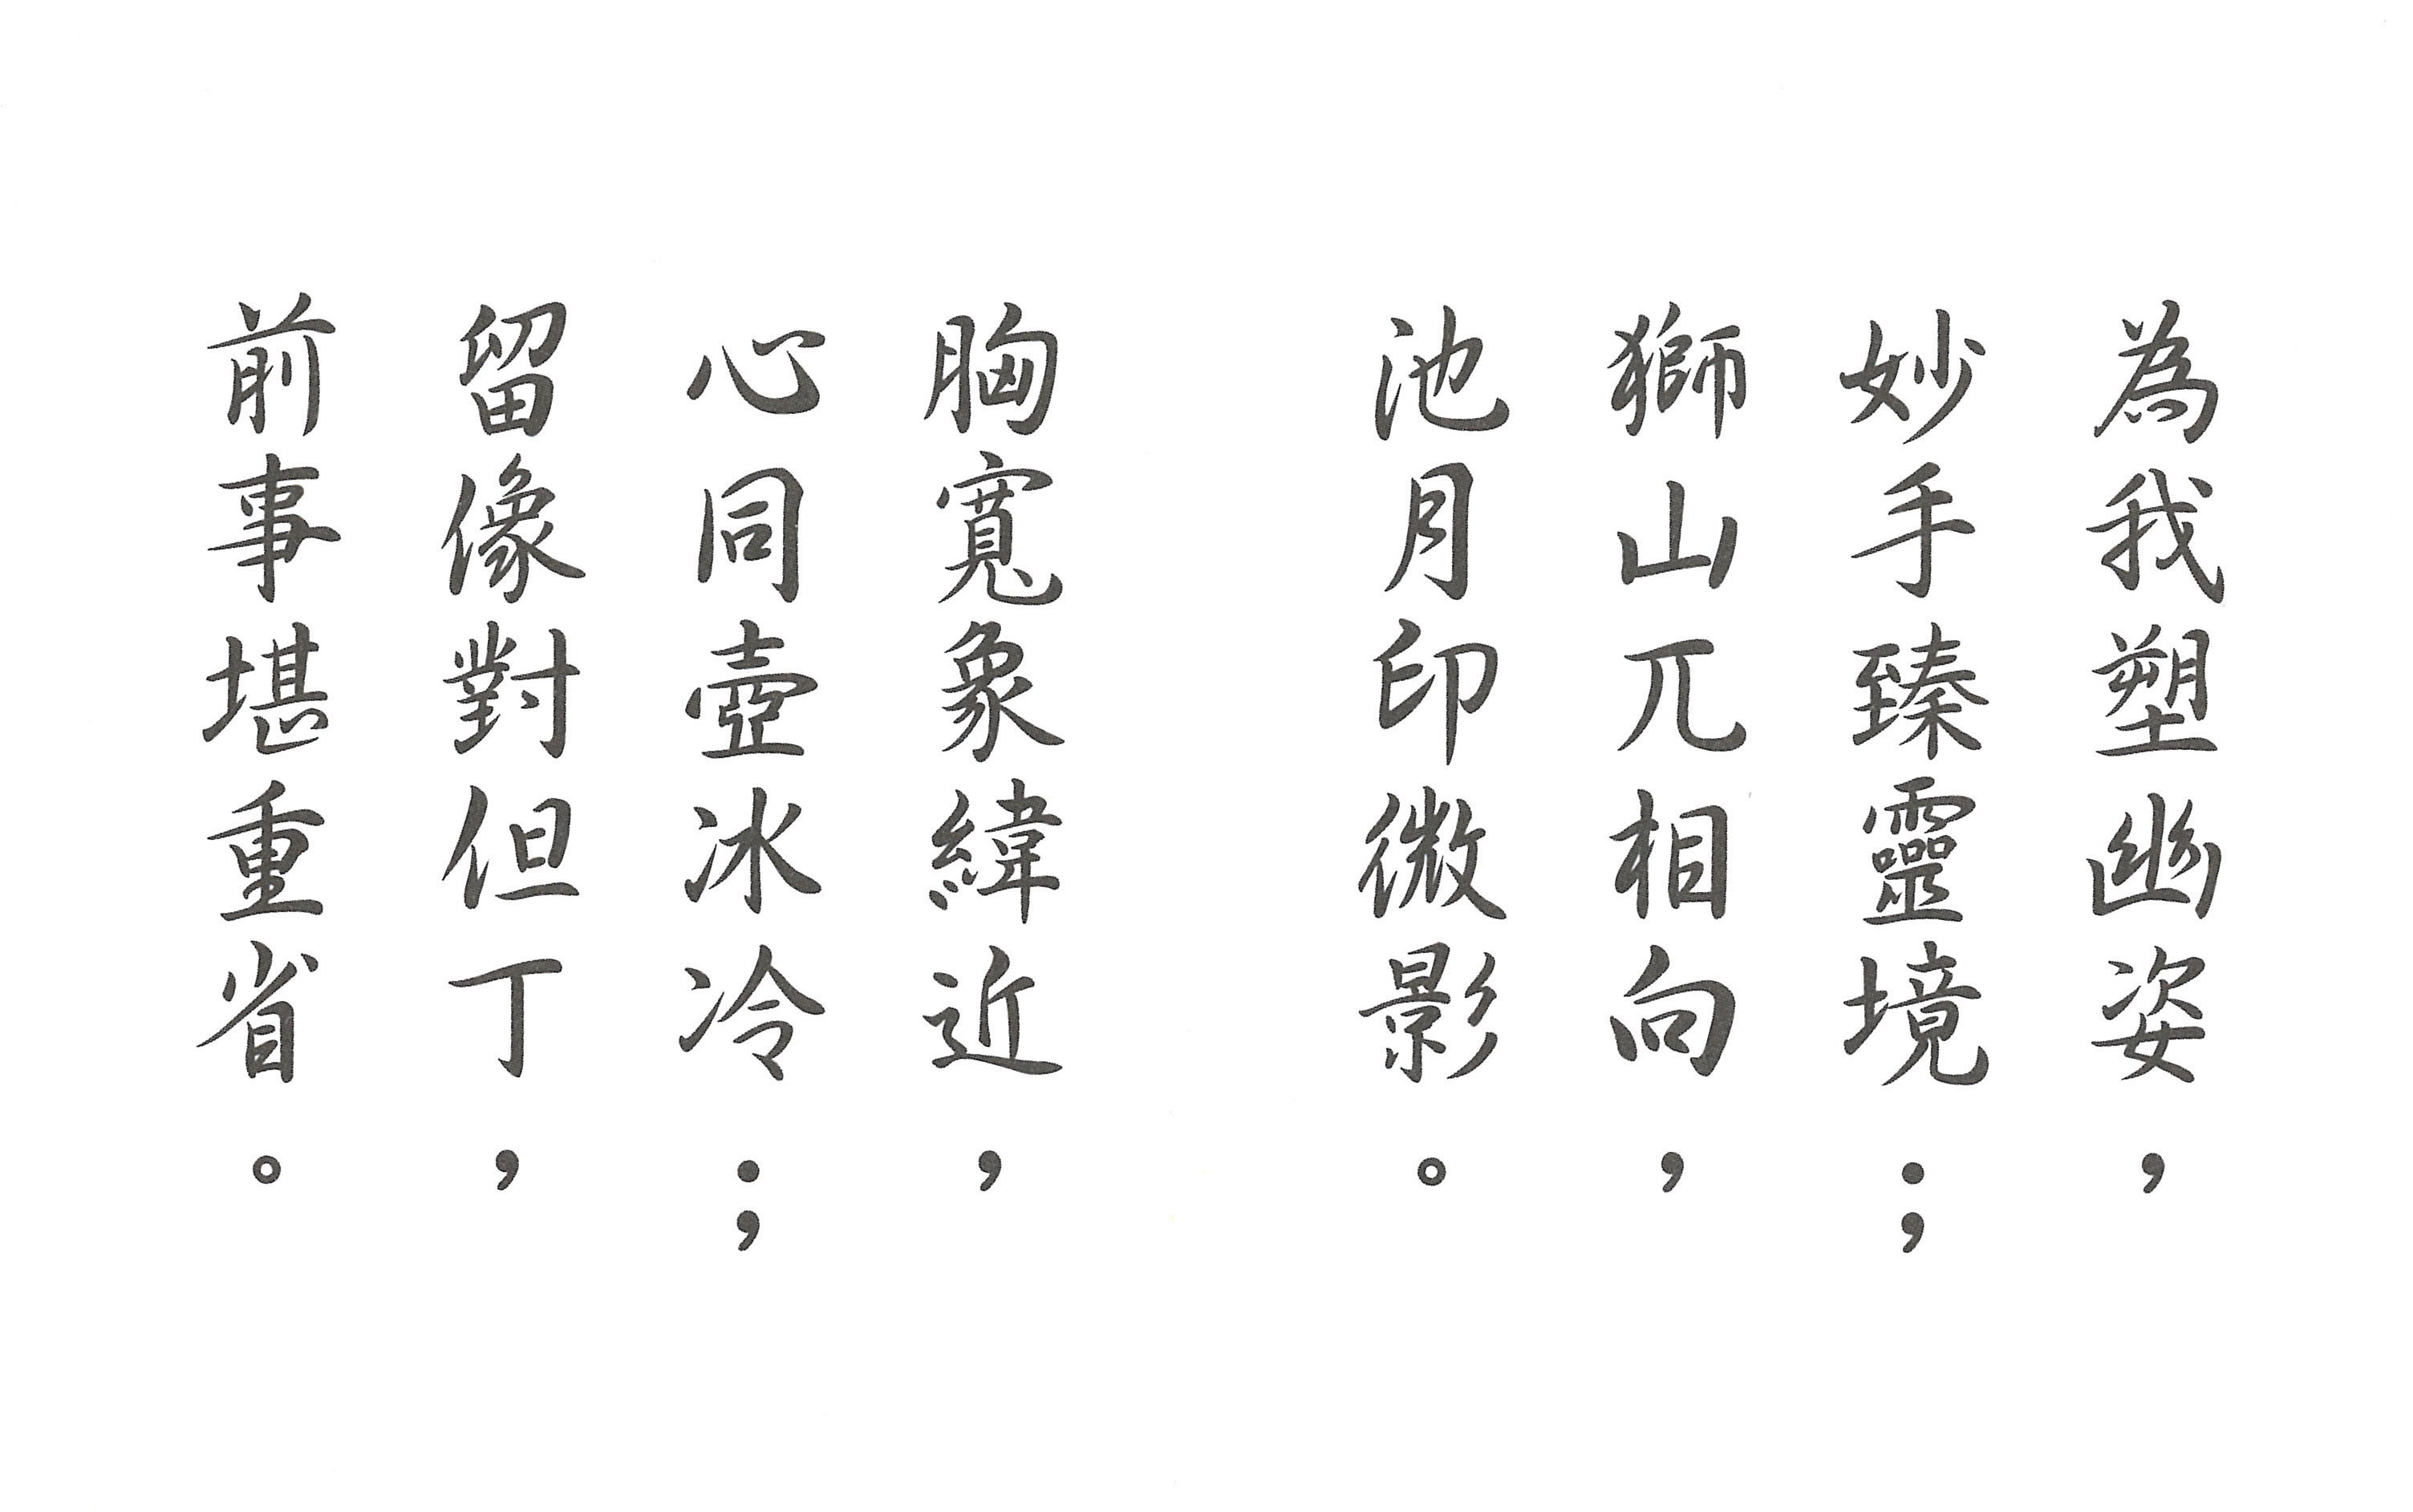 為我塑幽姿，
妙手臻靈境；
獅山兀相向，
池月印微影。
胸寬象緯近，
心同壺冰冷；
留像對但丁，
前事堪重省。